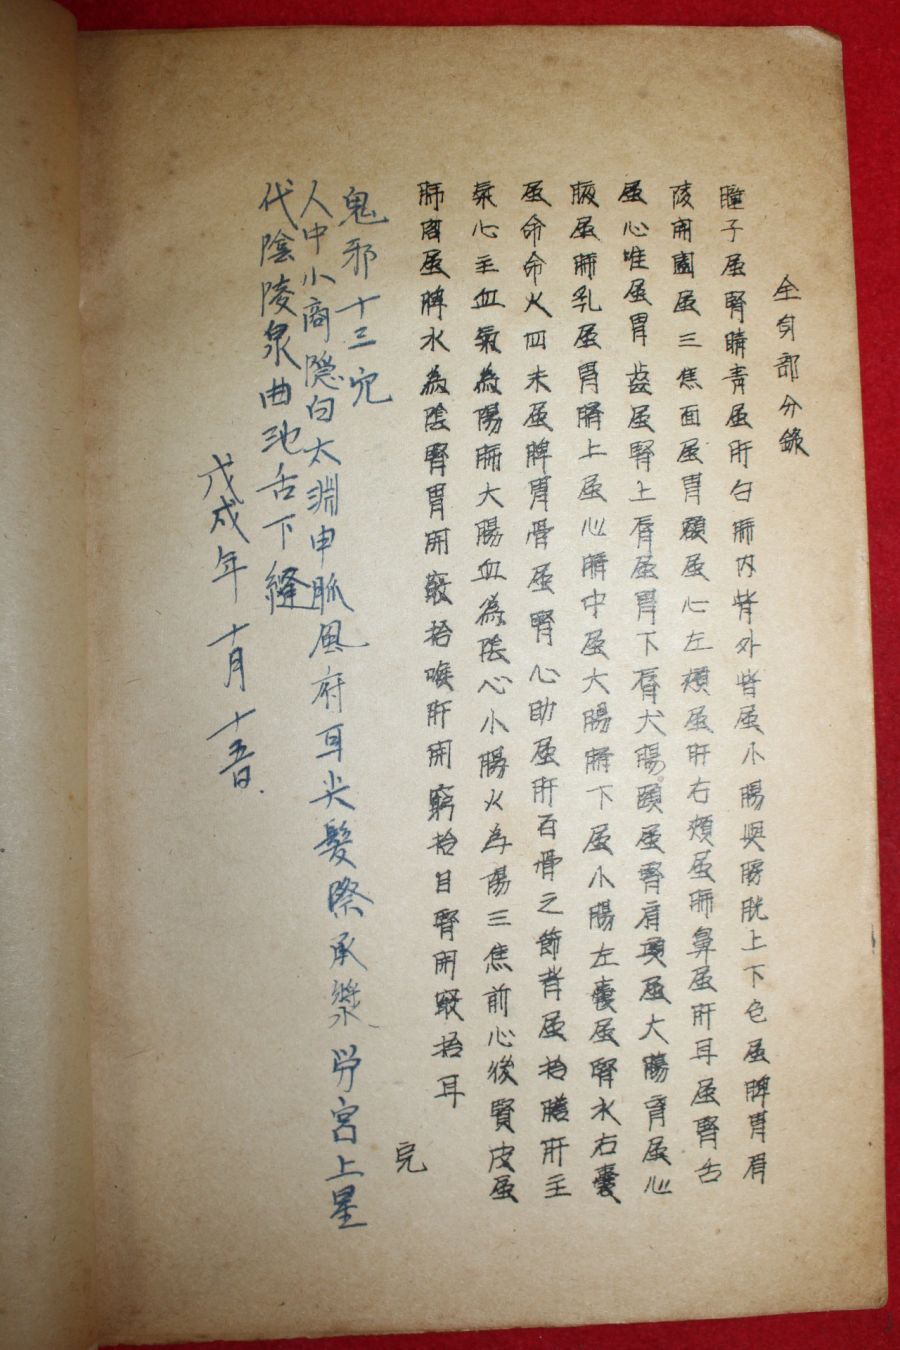 全身部分錄
瞳子屬腎睛青屬肝白肺內眥外眥屬小腸與膀胱上下色屬脾胃眉
陵開圓屬三焦面屬胃額屬心左頰屬肝右頰屬肺鼻屬肝耳屬腎舌
屬心唯屬胃齒屬腎上唇屬胃下唇大腸頤屬腎肩項屬大腸育屬心
腋屬肺乳屬胃臍上屬心臍中屬大腸臍下屬小腸左囊屬腎水右囊
屬命命火四末屬脾胃骨屬腎心助屬肝百骨之節背屬拾膽肝主
氣心主血氣為陽肺大腸血為陰心小腸火為陽三焦前心後賢皮屬
肺屬脾水為陰腎胃開竅拾喉肝開竅拾目腎開竅拾耳
完
鬼邪十三穴
人中小商隱白太淵申脈風府耳尖髮際承漿 勞宮上星
代陰陵泉曲池舌下縫
戊戌年 十月 十五日